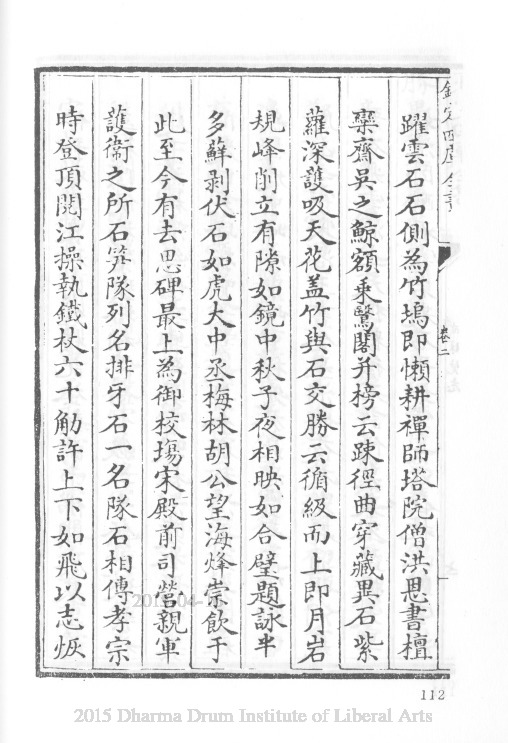 欽定四庫全書
卷二
躍雲石石側為竹塢即懶耕禪師塔院僧洪恩書檀
欒齋吳之鯨額乘鷖閣并榜云疎徑曲穿藏異石紫
蘿深護吸天花盖竹與石交勝云循級而上即月岩
規峰削立有隙如鏡中秋子夜相映如合璧題詠半
多蘚剥伏石如虎大中丞梅林胡公望海烽崇飲于
此至今有去思碑最上為御校塲宋殿前司營親軍
䕶衛之所石笋隊列名排牙石一名隊石相傳孝宗
時登頂閲江操執鐵杖六十觔許上下如飛以志恢
112
2015 Dharma Drum Institute of Liberal Arts